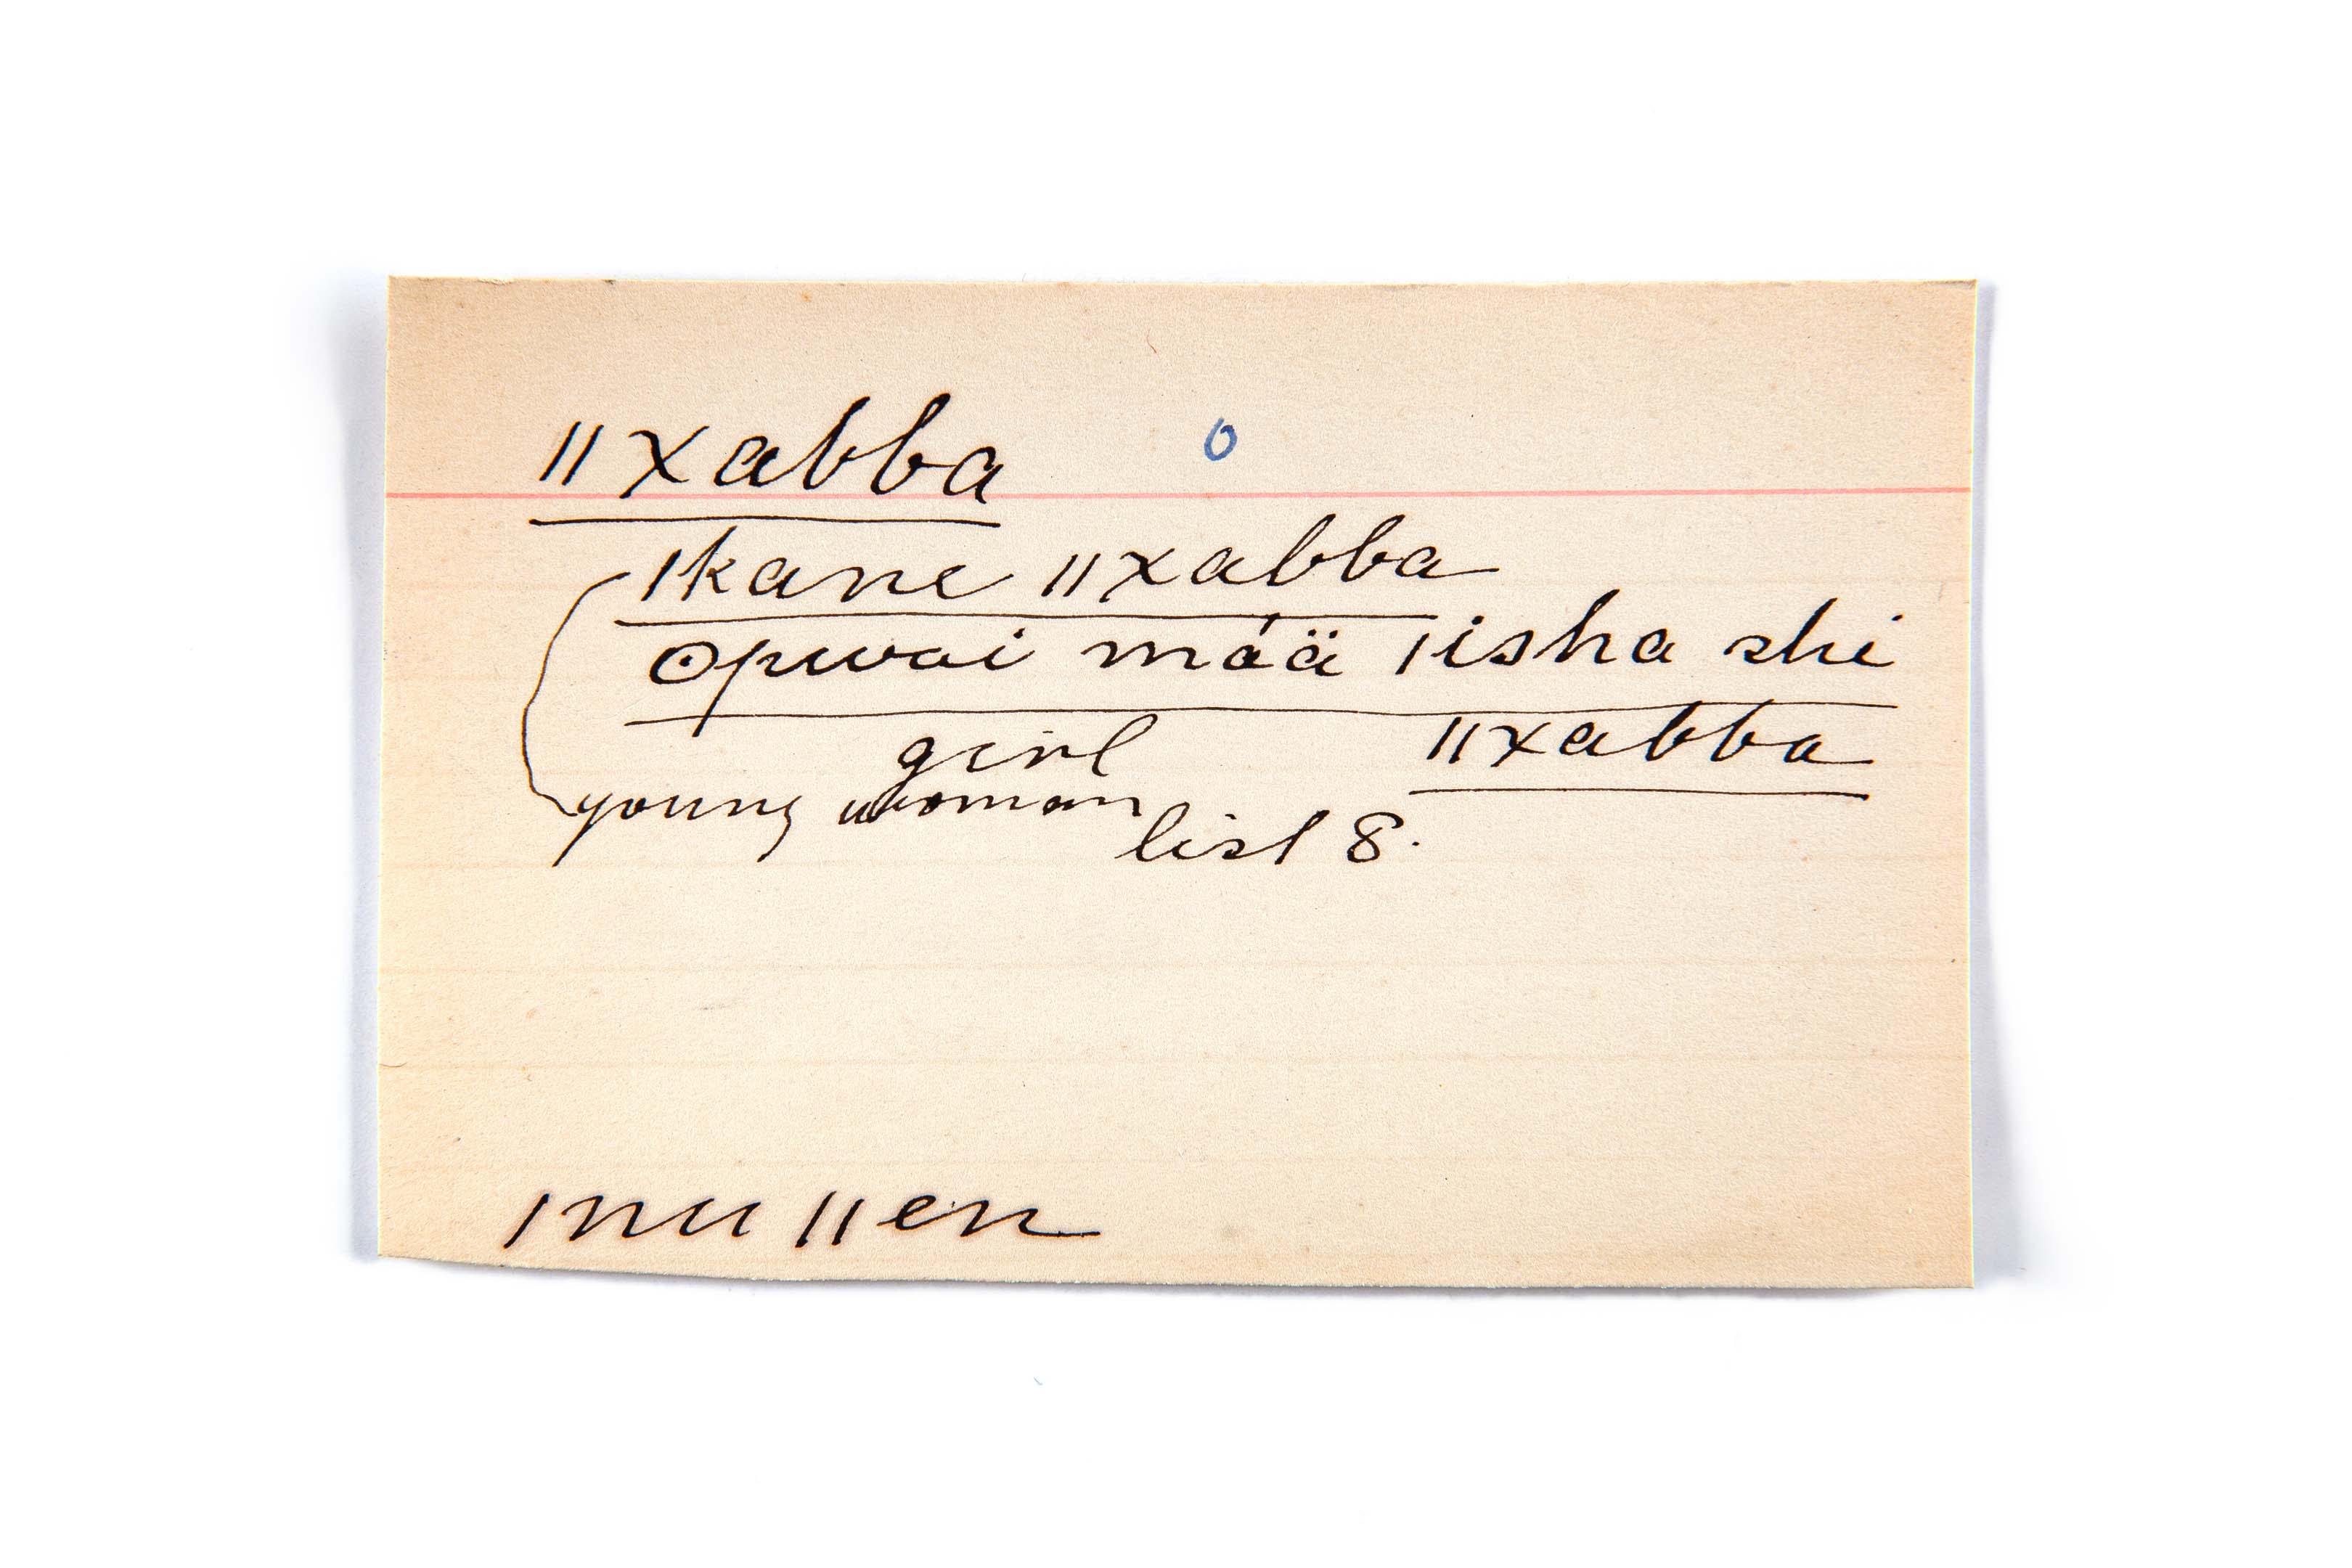 ǁxabba o
ǀkane ǁxabba
ʘpwai mȧä ǀisha shi
girl ǁxabba
young woman
list 8.
ǀnu ǁen